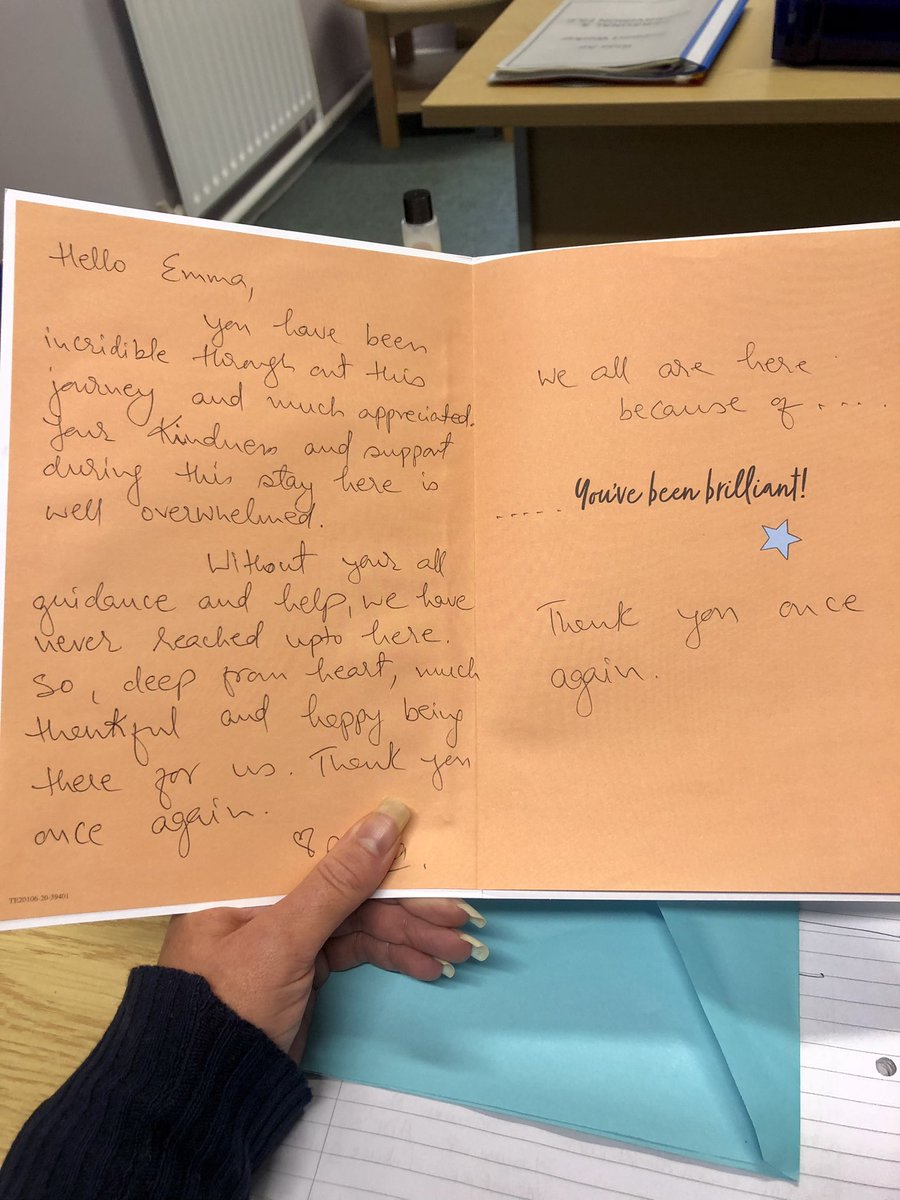 Hello Emma,
You have been
incridible through out this
journey and much appreciated.
Your Kindness and support
during this stay here is
well overwhelmed.
Without your all
guidance and help, we have
never reached upto here.
So, deep from heart, much
thankful and happy being
there for us. Thank you
once again.
TE20106-20-59401
we all are here
because of ....
..... You've been brilliant!
Thank you once
again.